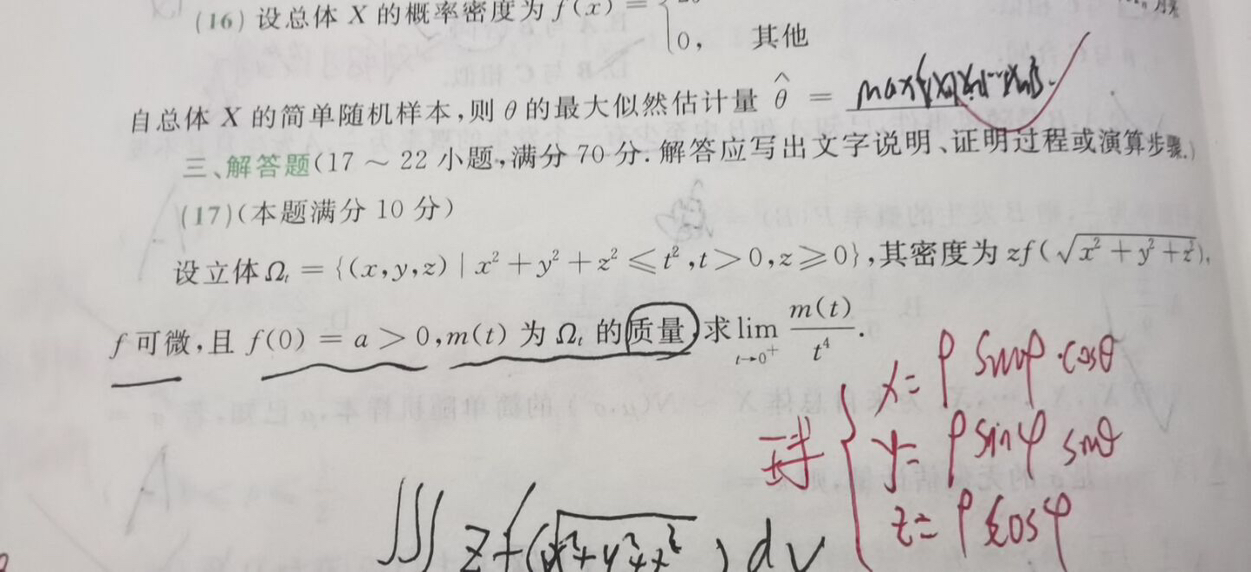 (16) 设总体 X 的概率密度为 f(x) = {
0, 其他
自总体 X 的简单随机样本,则 θ 的最大似然估计量 θ̂ = max{X₁,X₂,…,Xₙ}.
三、解答题(17 ~ 22 小题,满分 70 分.解答应写出文字说明、证明过程或演算步骤.)
(17)(本题满分 10 分)
设立体 Ωₜ = {(x,y,z) | x² + y² + z² ≤ t², t > 0, z ≥ 0},其密度为 zf(√(x² + y² + z²)),
f 可微,且 f(0) = a > 0,m(t) 为 Ωₜ 的质量,求 lim t→0⁺ m(t)/t⁴.
x = ρ sinφ·cosθ
y = ρ sinφ sinθ
z = ρ cosφ
∭ z f(√(x²+y²+z²)) dv